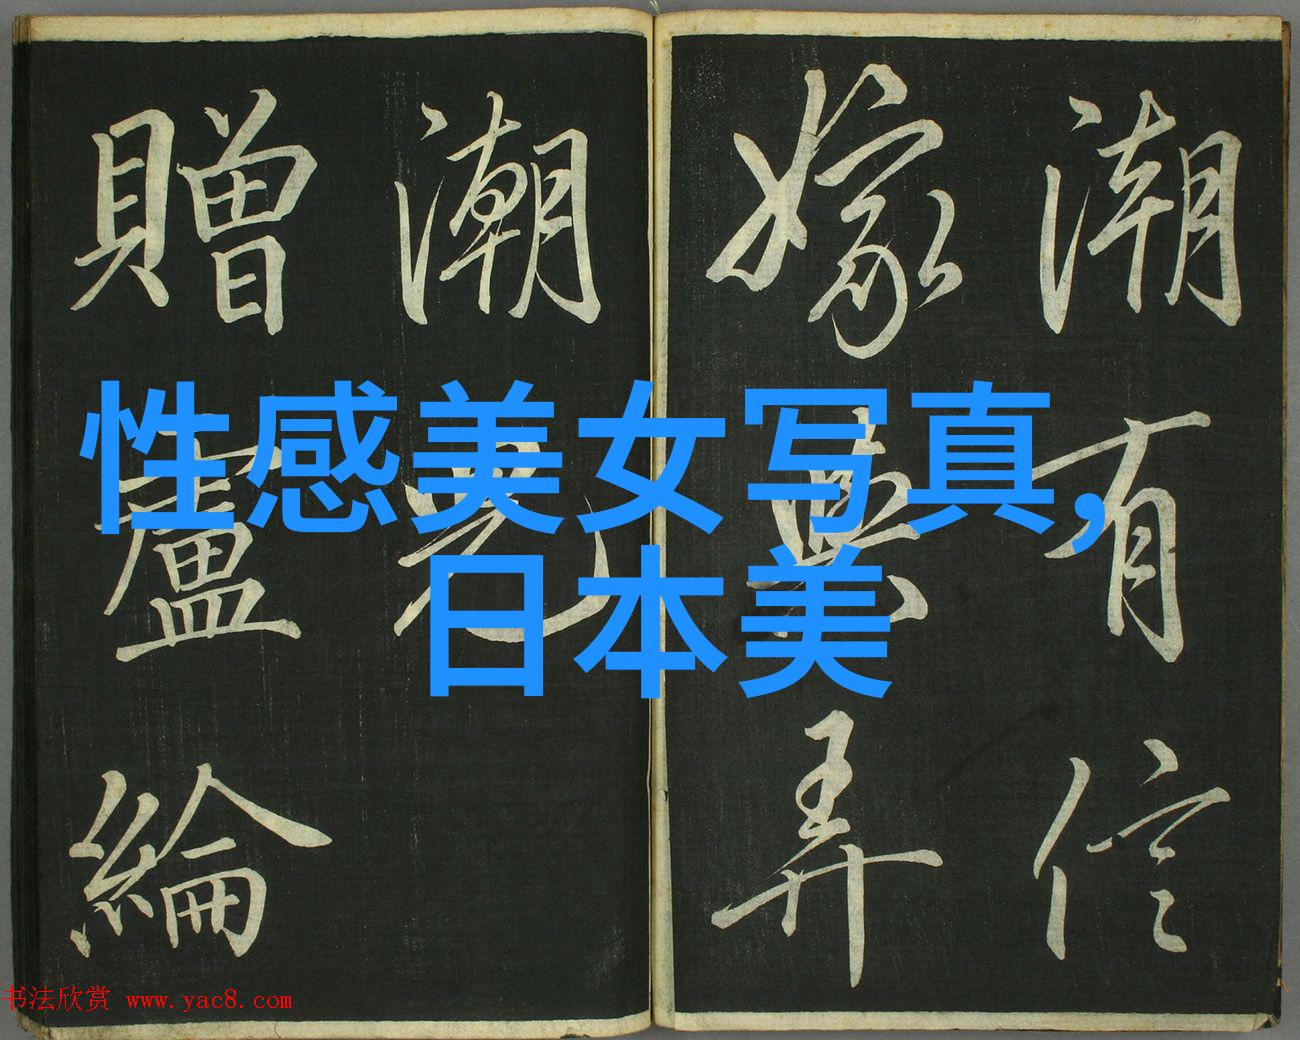 潮有信
嫁與弄
潮兒
贈盧綸
性感美女写真,
日本美
书法欣赏 www.yac8.com